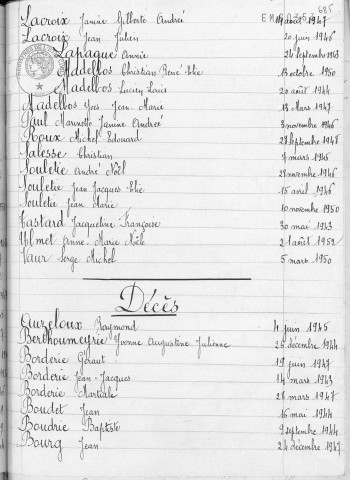 685
Lacroix Janine Gilberte Andrée août 1947
Lacroix Jean Julien 20 juin 1946
Lapaque Annie 24 septembre 1943
Madelbos Christian René Elie 15 octobre 1950
Madelbos Lucien Louis 20 août 1944
Madelbos Yves Jean Marie 13 Mars 1947
Paul Marinette Janine Andrée 3 novembre 1946
Roux Michel Edouard 28 septembre 1948
Salesse Christian 7 mars 1946
Souletie André Noël 28 novembre 1946
Souletie Jean Jacques Elie 15 avril 1946
Souletie Jean Marie 10 novembre 1950
Tastard Jacqueline Françoise 30 mai 1943
Ulmet Anne Marie Noële 21 août 1952
Vaur Serge Michel 5 mars 1950
Décès
Auzeloux Raymond 4 juin 1945
Berthoumeyrie Yvonne Augustine Julienne 25 décembre 1944
Borderie Géraud 19 juin 1947
Borderie Jean-Jacques 14 mars 1943
Borderie Martiale 28 mars 1947
Boudet Jean 16 mai 1944
Boudrie Baptiste 9 septembre 1944
Bourg Jean 24 décembre 1947